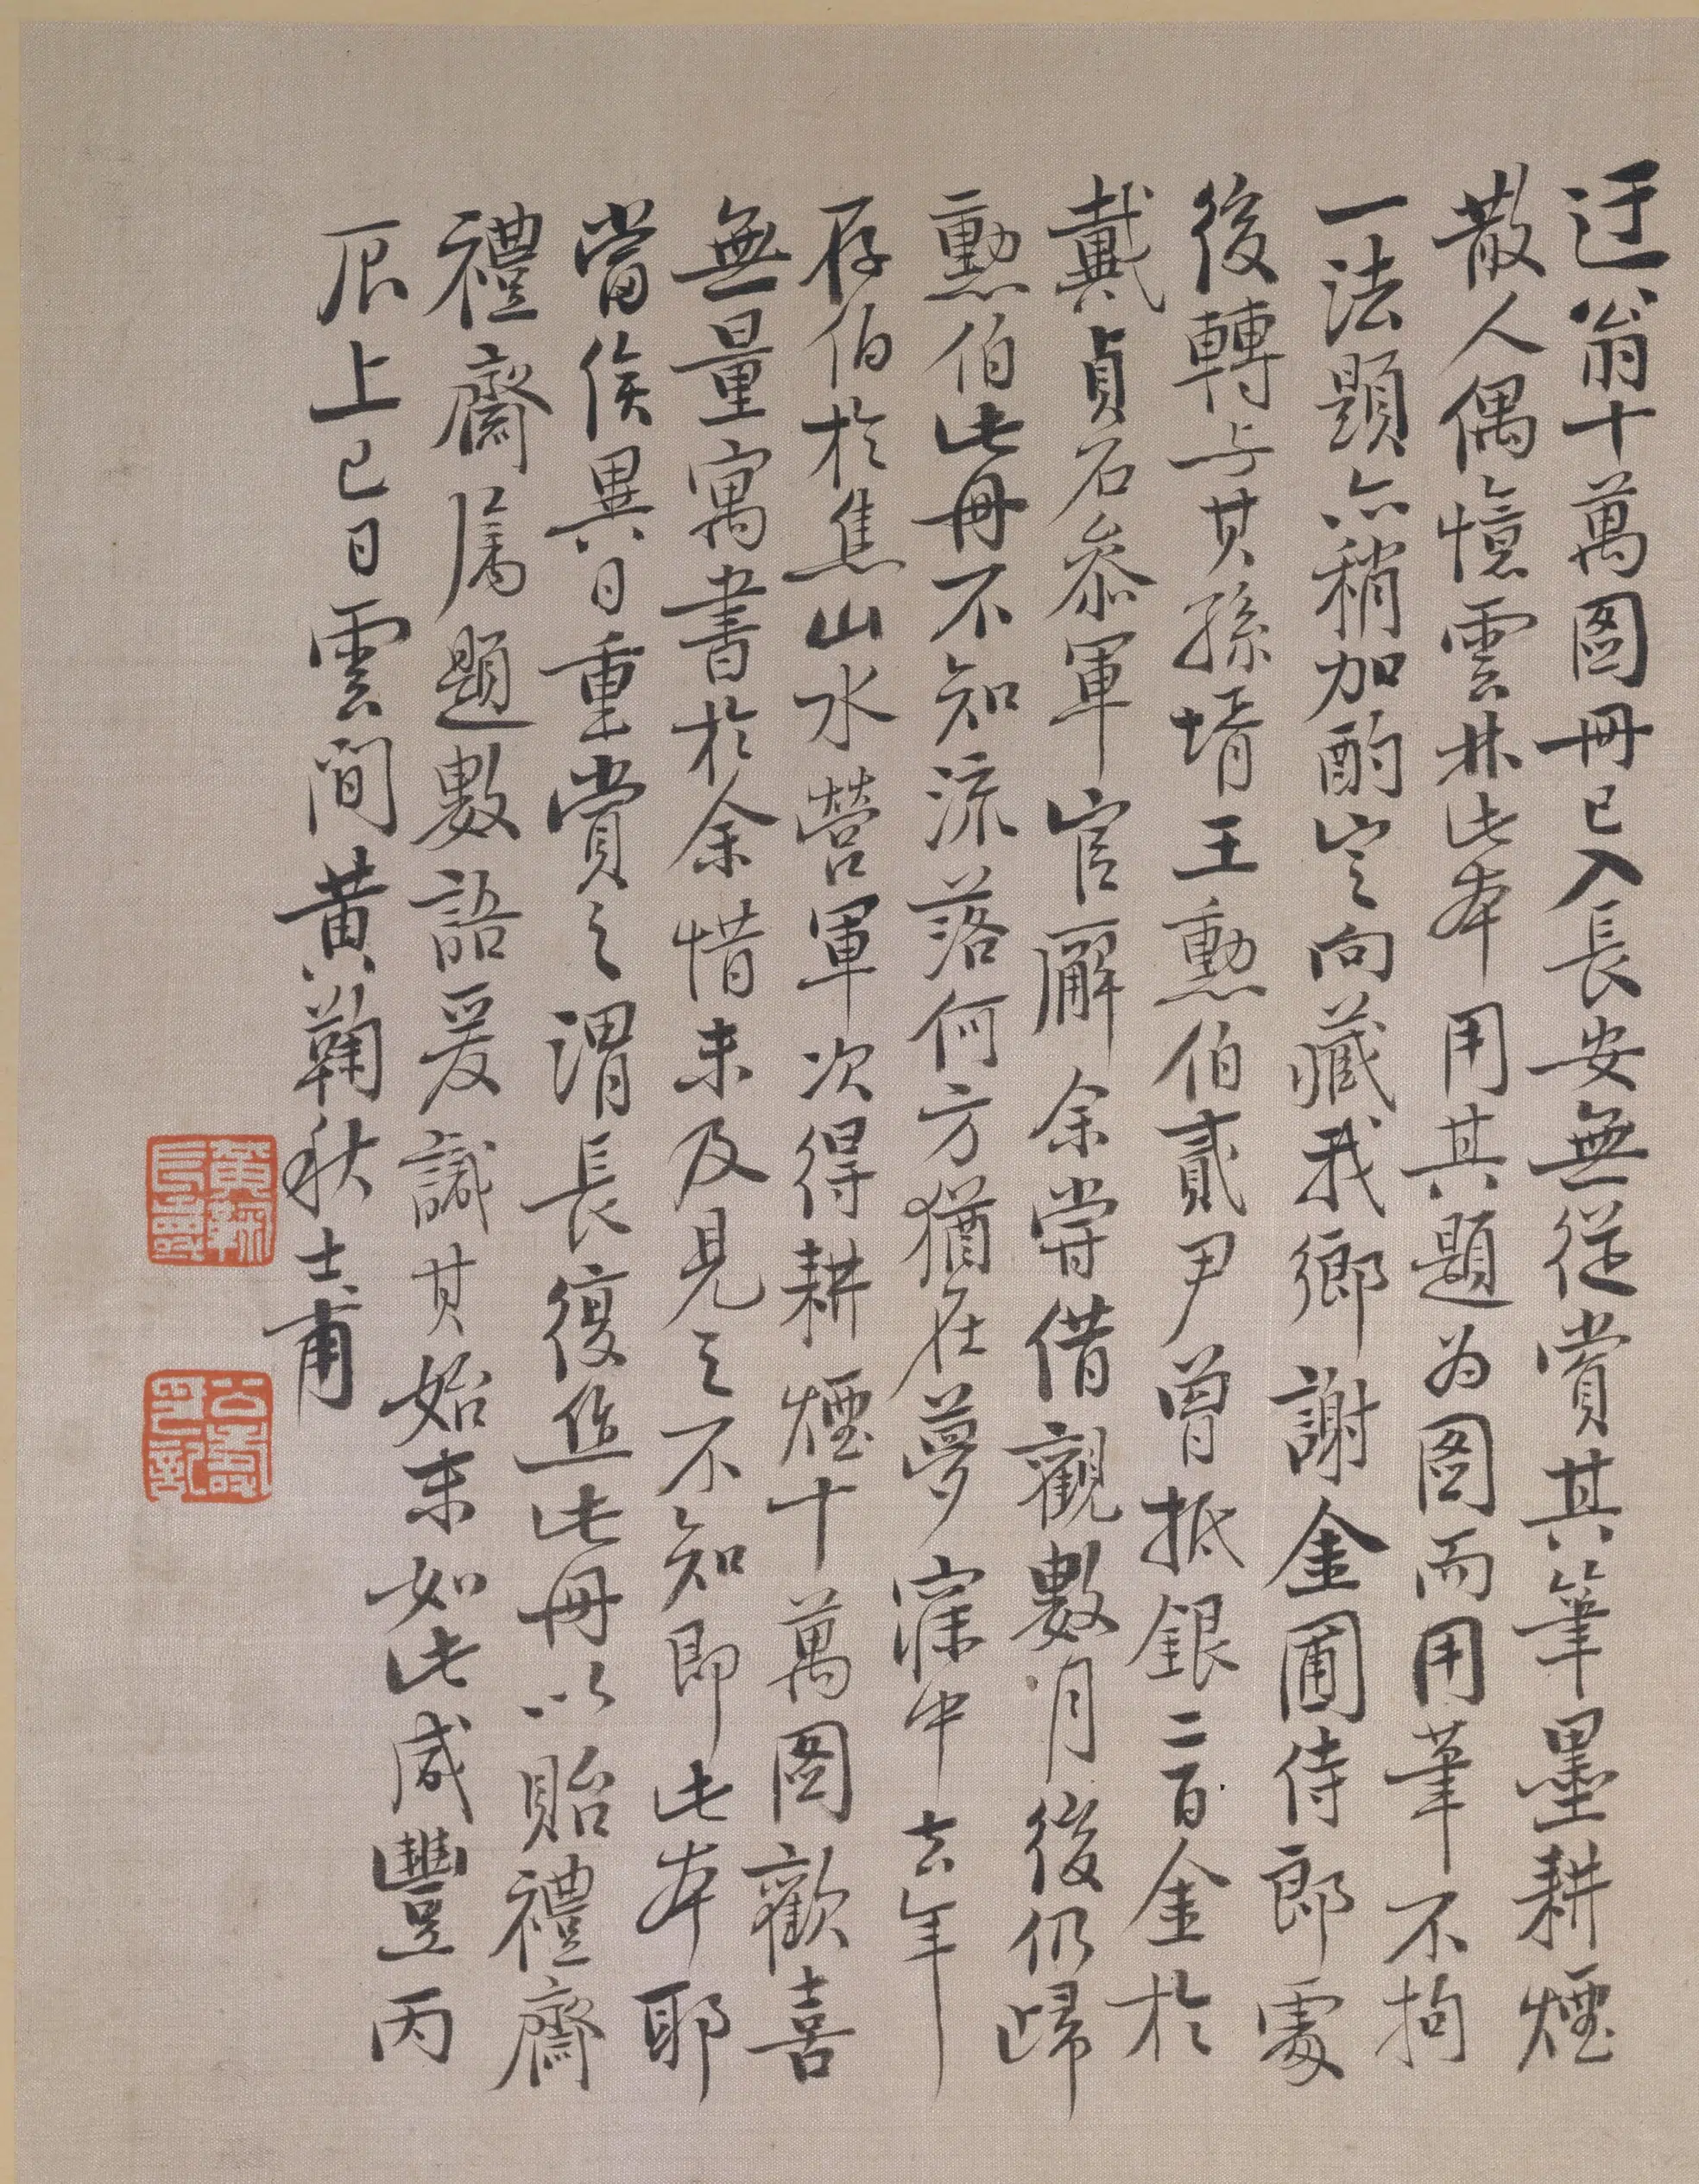 迂翁十萬圖冊已入長安無從賞其筆墨耕煙
散人偶憶雲林此本用其題為圖而用筆不拘
一法題亦稍加酌定向藏我鄉謝金圃侍郎處
後轉与其孫壻王勲伯貳尹曾抵銀二百金於
戴貞石叅軍官廨余嘗借觀數月後仍歸
勲伯此冊不知流落何方猶在夢寐中去年
存伯於焦山水營軍次得耕煙十萬圖歡喜
無量寓書於余惜未及見之不知即此本耶
當俟異日重賞之渭長復造此冊以貽禮齋
禮齋属題數語爰識其始末如此咸豐丙
辰上巳日雲間黃鞠秋士甫
黃鞠
長壽
公壽